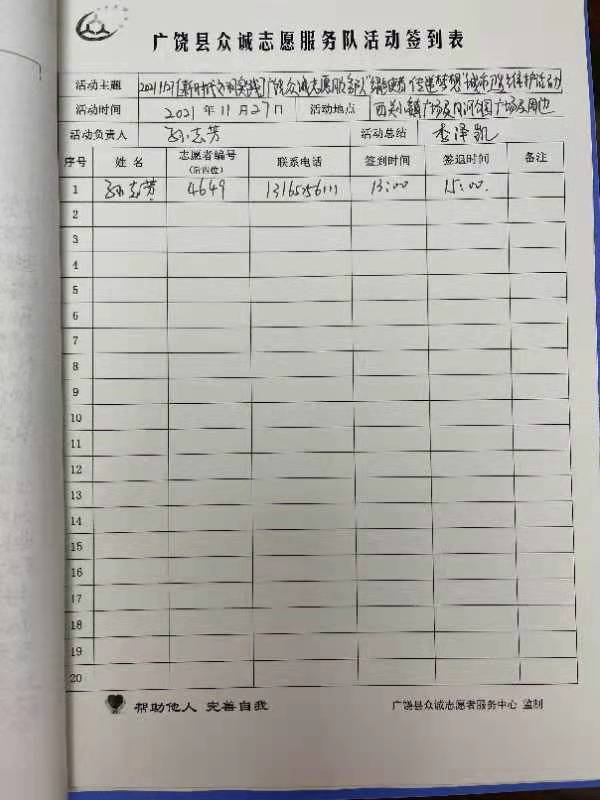 广饶县众诚志愿服务队活动签到表
活动主题 20211127【新时代文明实践】广饶众诚志愿服务队“绿能使者 传递梦想”城市卫生维护活动
活动时间 2021年11月27日 活动地点 西关小镇广场及月河公园广场及周边
活动负责人 孙志芳 活动总结 李泽凯
序号 姓名 志愿者编号 联系电话 签到时间 签退时间 备注
(后四位)
1 孙志芳 4649 13:00 15:00.
2
3
4
5
6
7
8
9
10
11
12
13
14
15
16
17
18
19
20
帮助他人 完善自我 广饶县众诚志愿者服务中心 监制